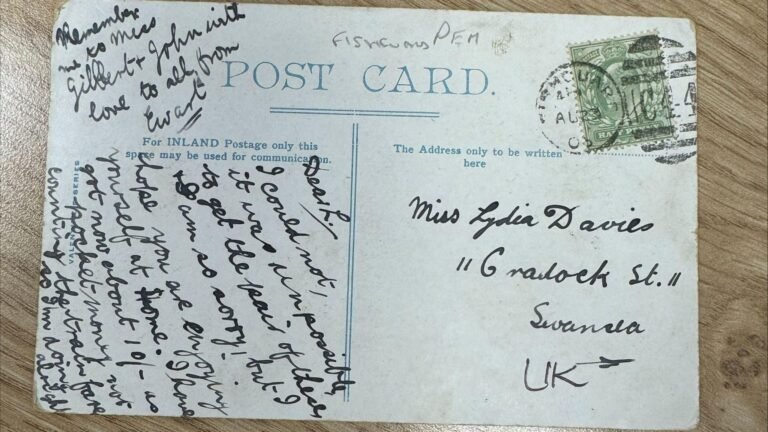 Remember
me to Miss
Gilbert & John with
love to all, from
Ewart
FISHGUARD PEM
POST CARD.
For INLAND Postage only this
space may be used for communication.
The Address only to be written
here
VALENTINE'S SERIES
Dear L.,
I could not,
it was unpossible,
to get the pair of these
I am so sorry! but I
hope you are enjoying
yourself at home. I have
got now about 10/- as
pocket-money not
counting the train fare
so I'm doing
alright
Miss Lydia Davies
"Cradock St."
Swansea
UK
AU
HALF